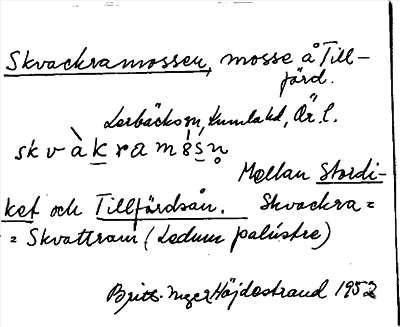 Skvackramossen, mosse å Till-
färd.
Lerbäcks sn, Kumla hd, Ör. l.
skvàkramåsn̥
Mellan Stordi-
ket och Tillfärdsån. Skvackra=
= Skvattram (Ledum palústre)
Britt-Inger Höjdestrand 1952